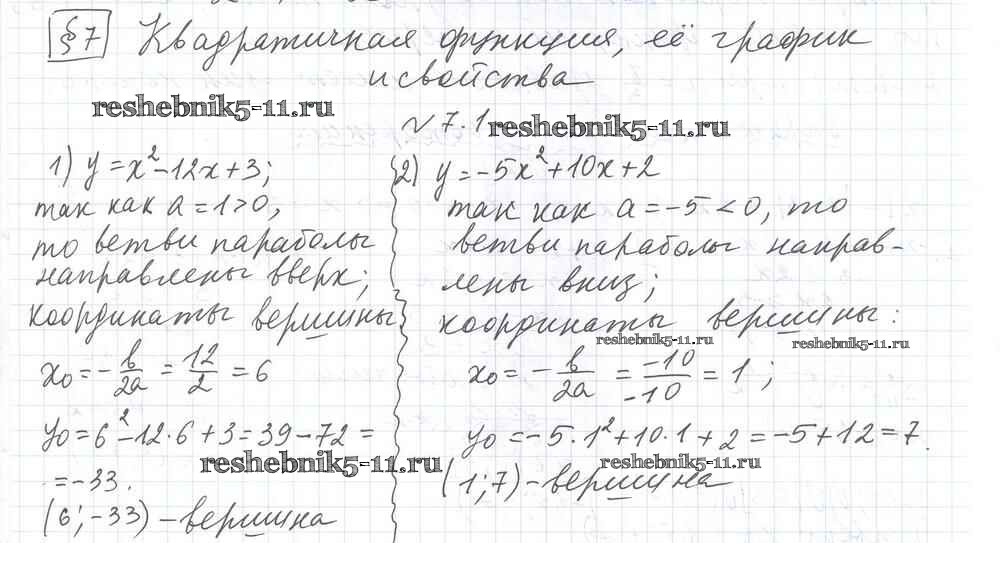 §7 Квадратичная функция, её график
и свойства
reshebnik5-11.ru
№ 7.1 reshebnik5-11.ru
1) y = x² - 12x + 3;
так как a = 1 > 0,
то ветви параболы
направлены вверх;
координаты вершины
x₀ = - b/2a = 12/2 = 6
y₀ = 6² - 12·6 + 3 = 39 - 72 =
reshebnik5-11.ru
= -33.
(6; -33) - вершина
2) y = -5x² + 10x + 2
так как a = -5 < 0, то
ветви параболы направ-
лены вниз;
координаты вершины:
reshebnik5-11.ru
reshebnik5-11.ru
x₀ = - b/2a = -10/-10 = 1;
y₀ = -5·1² + 10·1 + 2 = -5 + 12 = 7.
reshebnik5-11.ru
(1; 7) - вершина